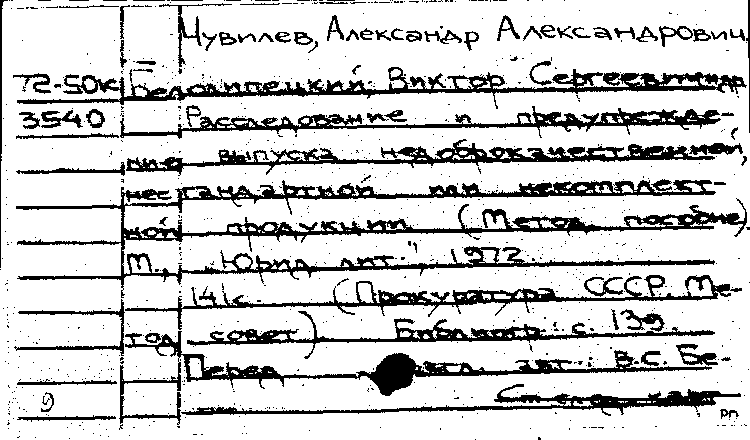 Чувилев, Александр Александрович.
72-50к Белолипецкий, Виктор Сергеевич и др
3540 Расследование и предупрежде-
ние выпуска недоброкачественной,
нестандартной или некомплект-
ной продукции (Метод. пособие)
М., „Юрид. лит.", 1972.
141 с. (Прокуратура СССР. Ме-
тод совет). Библиогр.: с. 139.
Перед загл. авт.: В.С. Бе-
9 См след. карт
РП